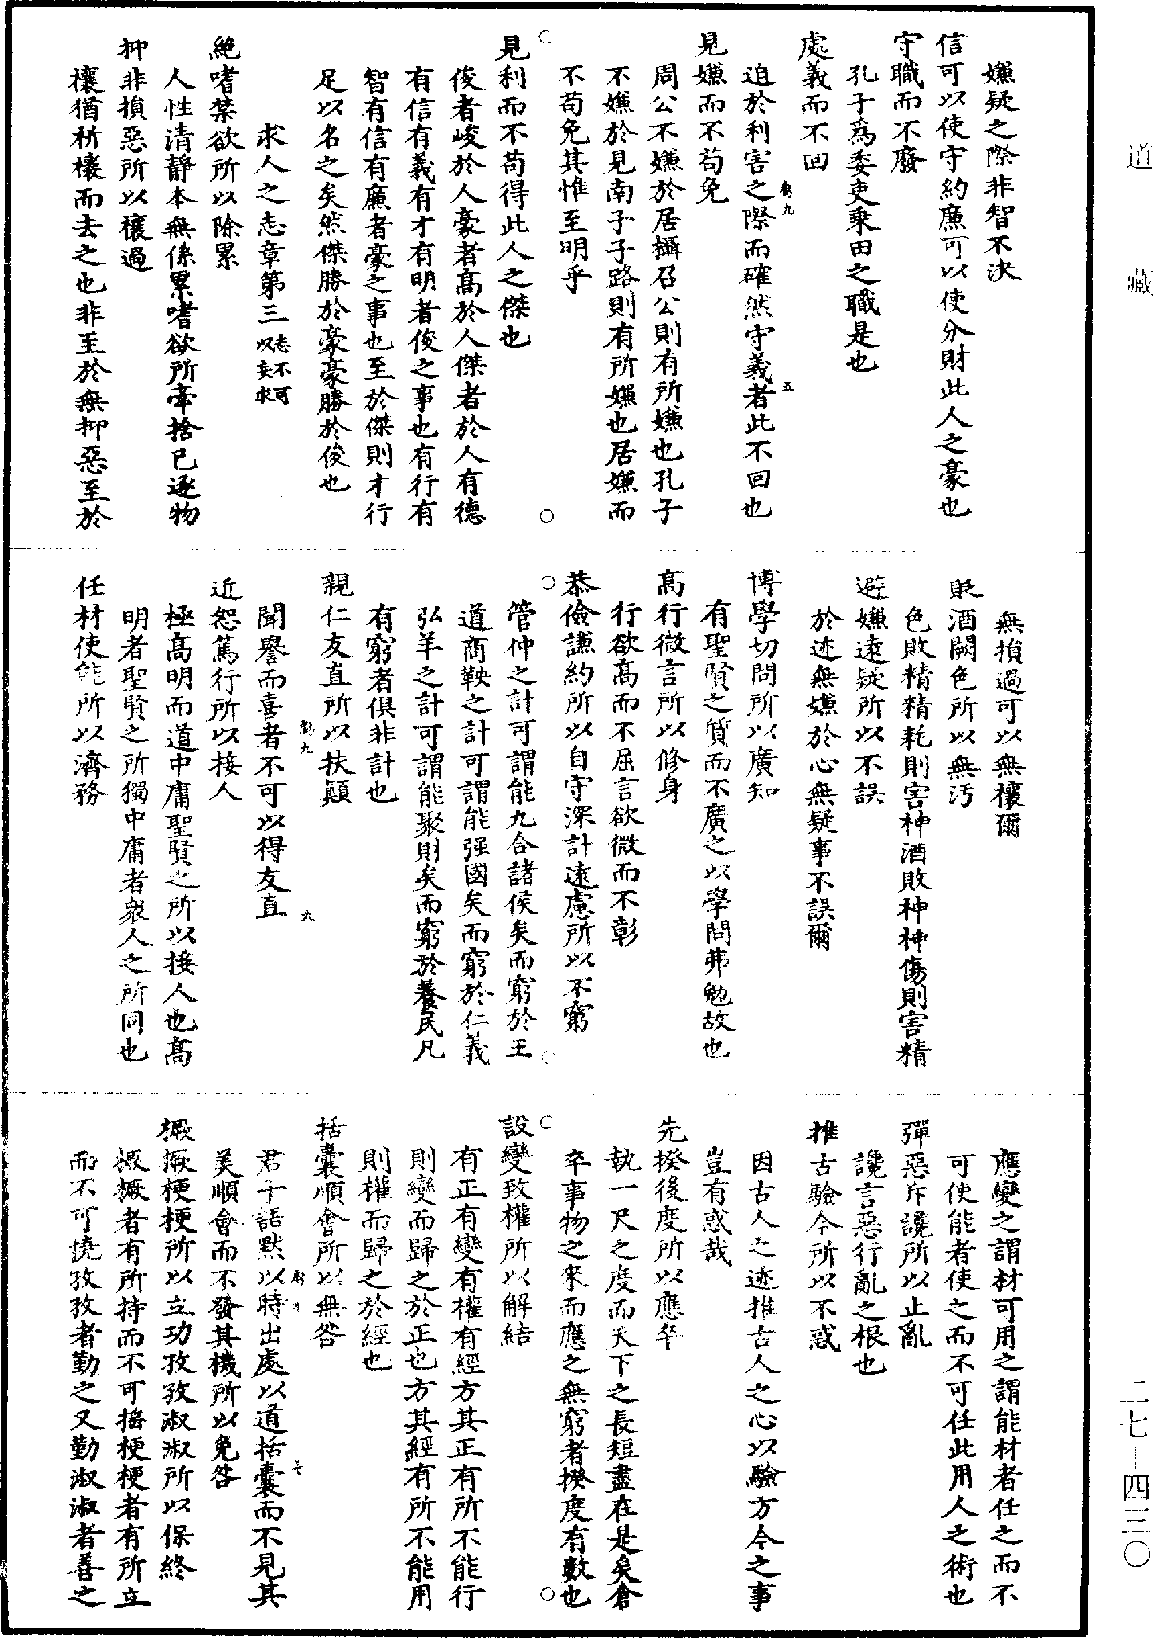 道藏
嫌疑之際非智不決
信可以使守約廉可以使分財此人之豪也
守職而不廢
孔子為委吏乘田之職是也
處義而不回
迫於利害之際而確然守義者此不回也
見嫌而不苟免
周公不嫌於居攝召公則有所嫌也孔子
不嫌於見南子子路則有所嫌也居嫌而
不苟免其惟至明乎
見利而不苟得此人之傑也
俊者峻於人豪者高於人傑者於人有德
有信有義有才有明者俊之事也有行有
智有信有廉者豪之事也至於傑則才行
足以名之矣然傑勝於豪豪勝於俊也
求人之志章第三志不可以妄求
絕嗜禁欲所以除累
人性清靜本無係累嗜欲所牽捨己逐物
抑非損惡所以禳過
禳猶祈禳而去之也非至於無抑惡至於
無損過可以無禳爾
貶酒闕色所以無汚
色敗精精耗則害神酒敗神神傷則害精
避嫌遠疑所以不誤
於迹無嫌於心無疑事不誤爾
博學切問所以廣知
有聖賢之質而不廣之以學問弗勉故也
高行微言所以修身
行欲高而不屈言欲微而不彰
恭儉謙約所以自守深計遠慮所以不窮
管仲之計可謂能九合諸侯矣而窮於王
道商鞅之計可謂能强國矣而窮於仁義
弘羊之計可謂能聚財矣而窮於養民凡
有窮者俱非計也
親仁友直所以扶顛
聞譽而喜者不可以得友直
近恕篤行所以接人
極高明而道中庸聖賢之所以接人也高
明者聖賢之所獨中庸者衆人之所同也
任材使能所以濟務
應變之謂材可用之謂能材者任之而不
可使能者使之而不可任此用人之術也
彈惡斥讒所以止亂
讒言惡行亂之根也
推古驗今所以不惑
因古人之迹推古人之心以驗方今之事
豈有惑哉
先揆後度所以應卒
執一尺之度而天下之長短盡在是矣倉
卒事物之來而應之無窮者揆度有數也
設變致權所以解結
有正有變有權有經方其正有所不能行
則變而歸之於正也方其經有所不能用
則權而歸之於經也
括囊順會所以無咎
君子語默以時出處以道括囊而不見其
美順會而不發其機所以免咎
橛橛梗梗所以立功孜孜淑淑所以保終
橛橛者有所持而不可搖梗梗者有所立
而不可撓孜孜者勤之又勤淑淑者善之
二七—四三〇